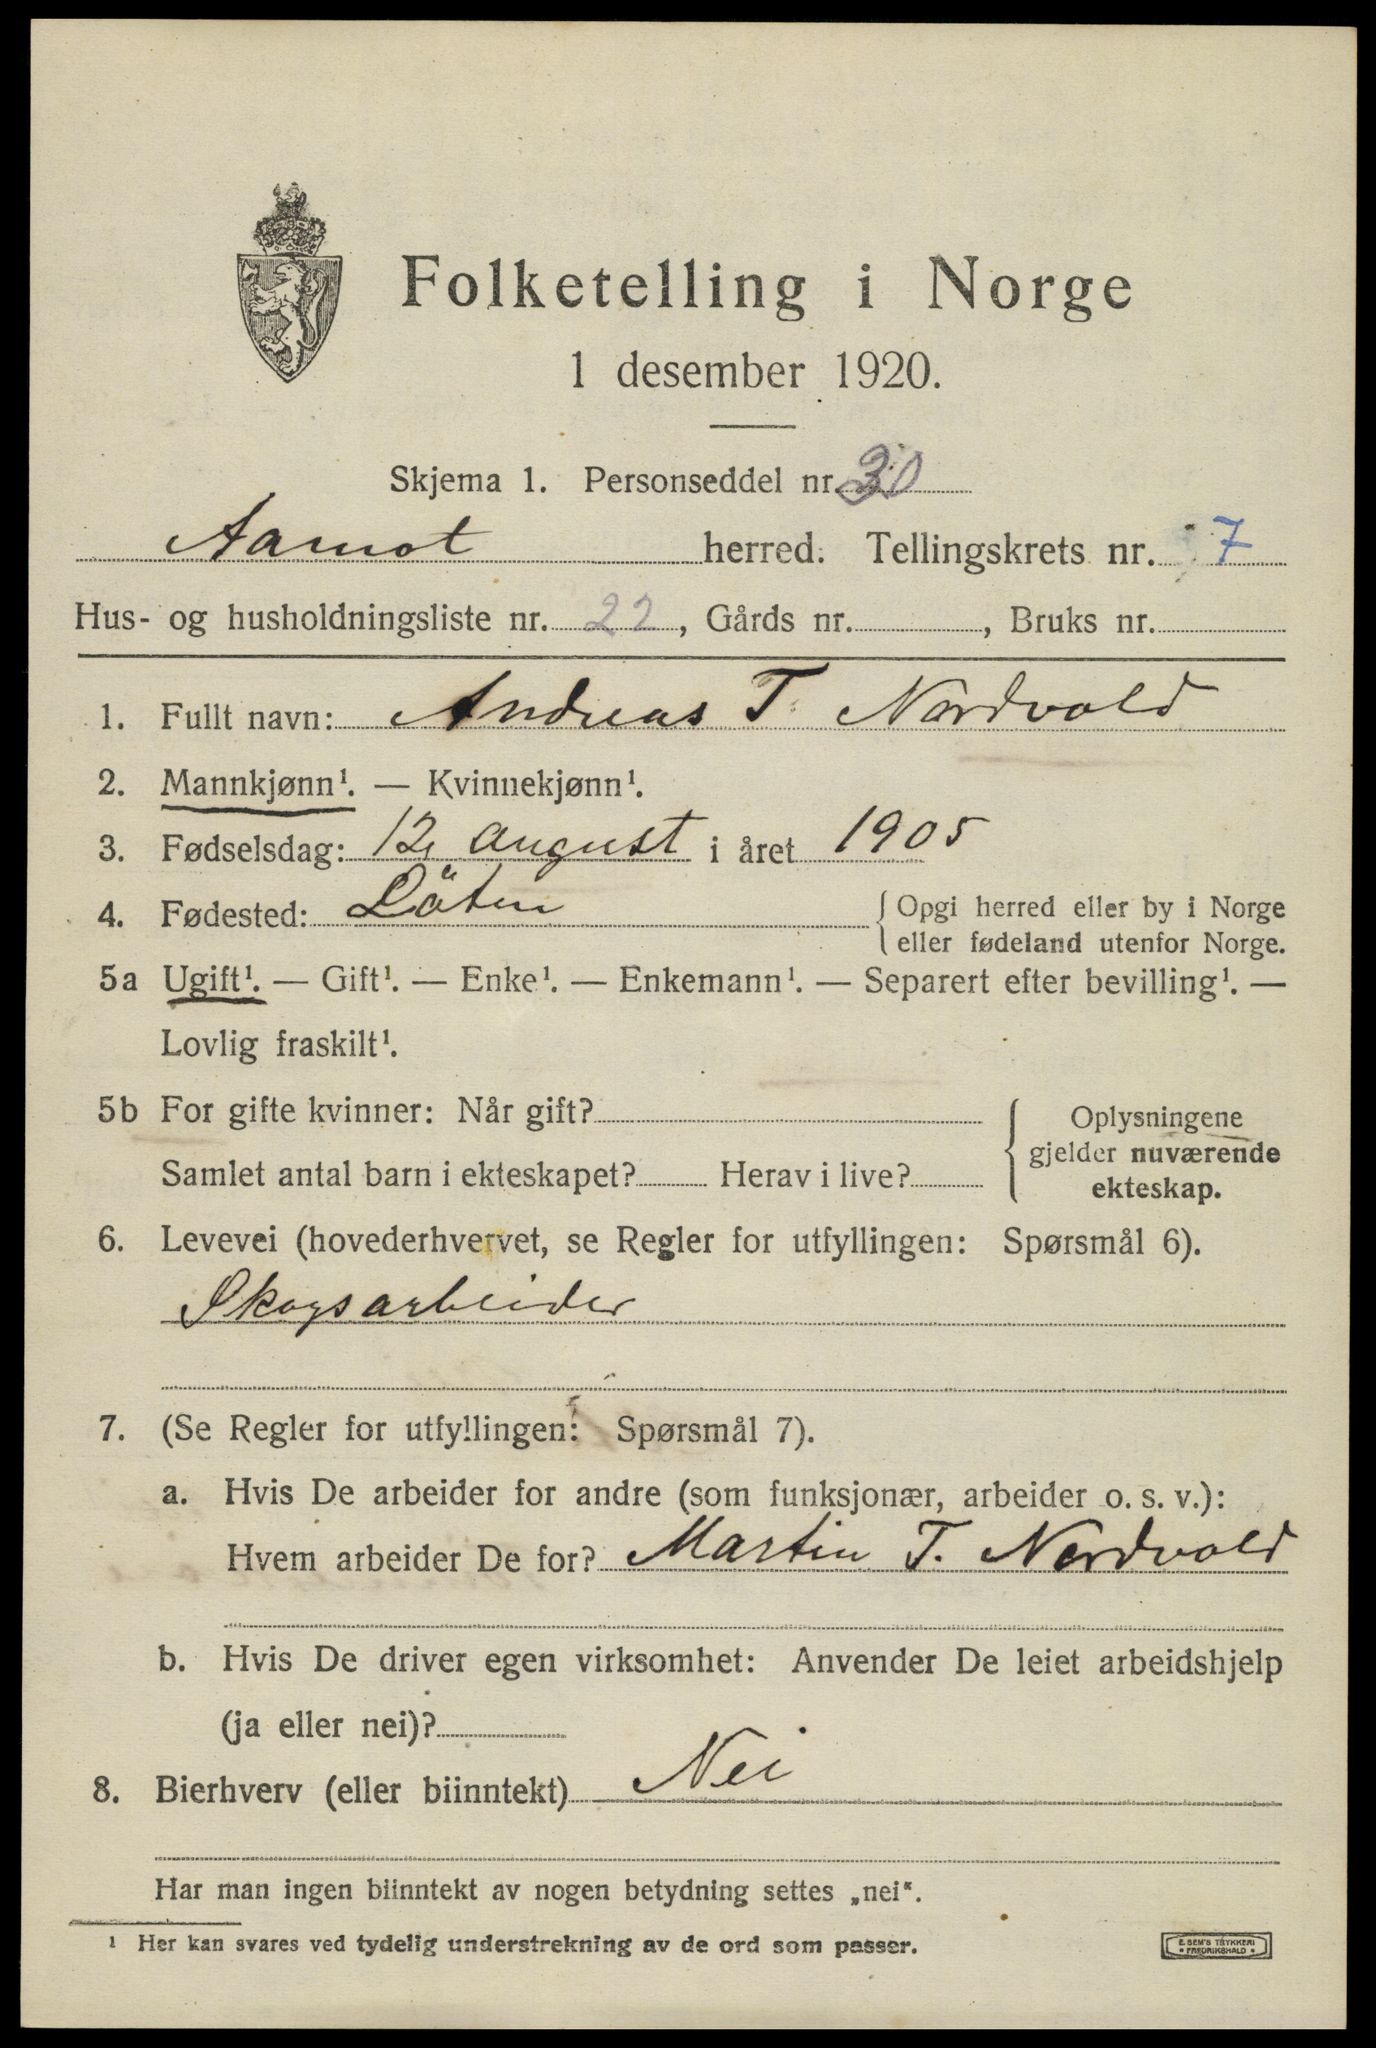 Folketelling i Norge
1 desember 1920.
Skjema 1. Personseddel nr. 30
Aamot herred. Tellingskrets nr. 7
Hus- og husholdningsliste nr. 22, Gårds nr. , Bruks nr.
1. Fullt navn: Andreas T. Nordvold
2. Mannkjønn¹. — Kvinnekjønn¹.
3. Fødselsdag: 12 august i året 1905
4. Fødested: Löten { Opgi herred eller by i Norge
eller fødeland utenfor Norge.
5a Ugift¹. — Gift¹. — Enke¹. — Enkemann¹. — Separert efter bevilling¹. —
Lovlig fraskilt¹.
5b For gifte kvinner: Når gift? { Oplysningene
gjelder nuværende
Samlet antal barn i ekteskapet? Herav i live?
ekteskap.
6. Levevei (hovederhvervet, se Regler for utfyllingen: Spørsmål 6).
Skogsarbeider
7. (Se Regler for utfyllingen: Spørsmål 7).
a. Hvis De arbeider for andre (som funksjonær, arbeider o. s. v.):
Hvem arbeider De for? Martin T. Nordvold
b. Hvis De driver egen virksomhet: Anvender De leiet arbeidshjelp
(ja eller nei)?
8. Bierhverv (eller biinntekt) Nei
Har man ingen biinntekt av nogen betydning settes „nei".
¹ Her kan svares ved tydelig understrekning av de ord som passer.
E. SEM'S TRYKKERI
• FREDRIKSHALD •